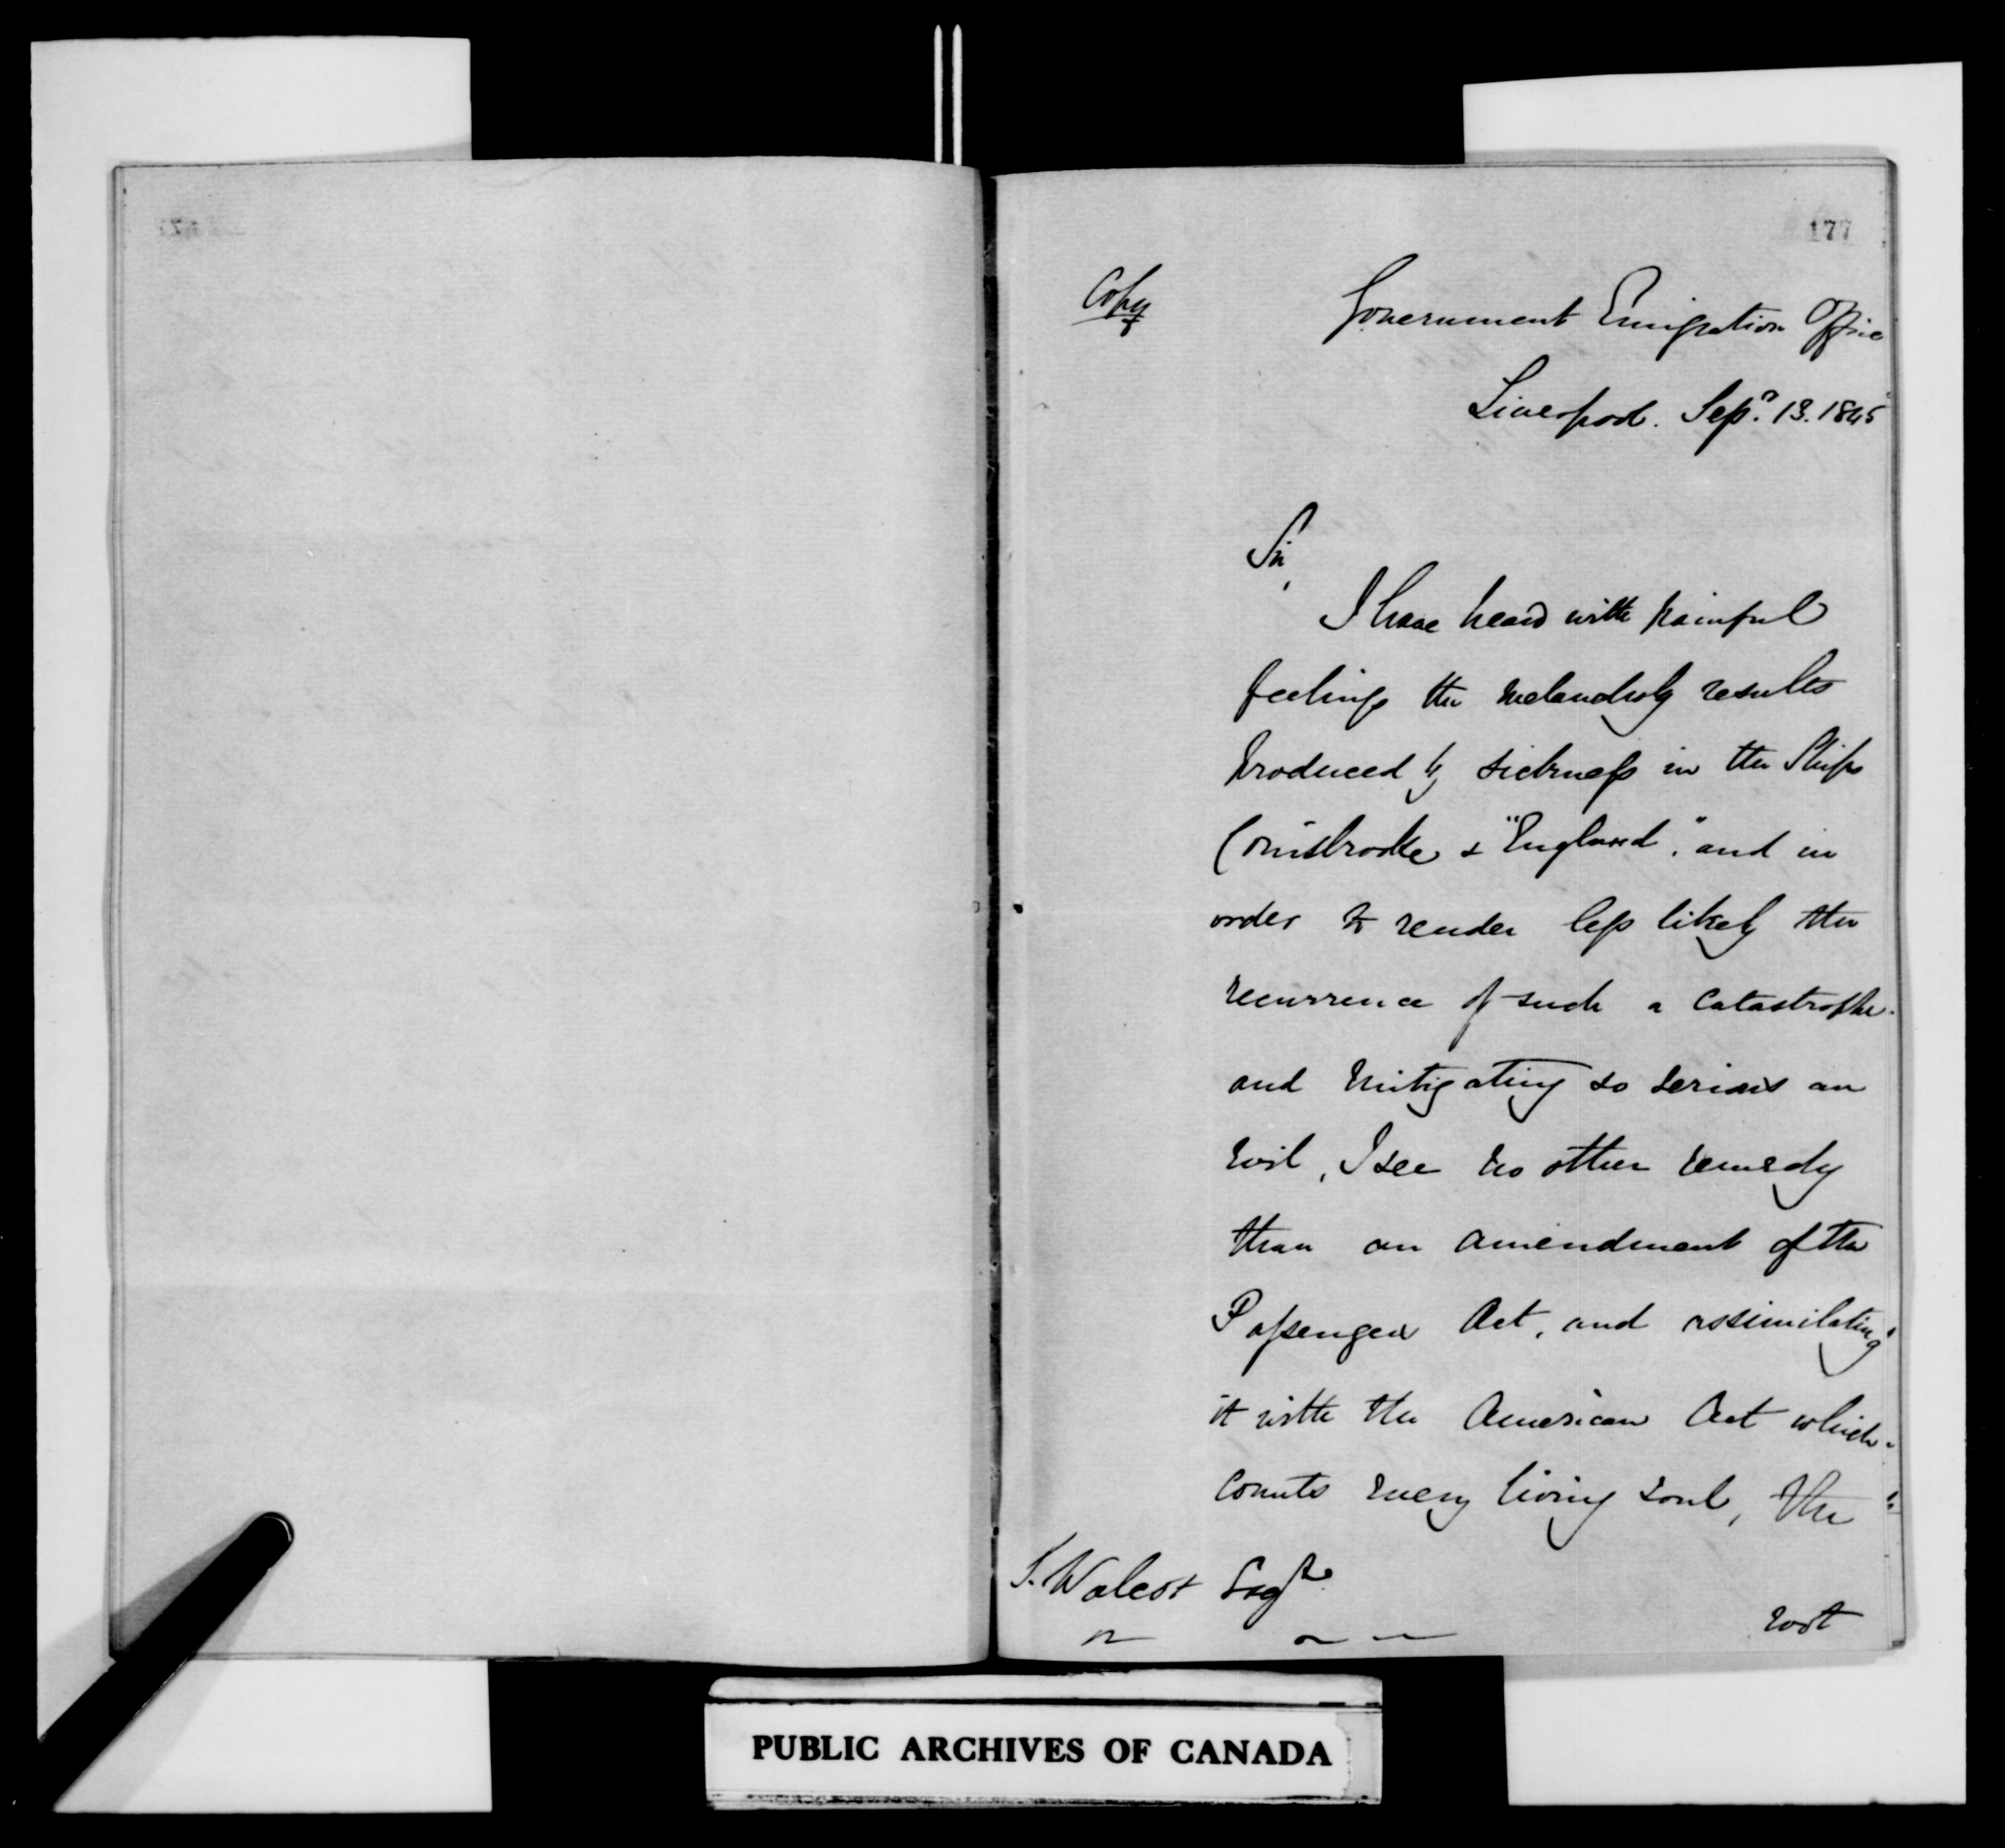 177
Copy
Government Emigration Office
Liverpool. Sep.r 13. 1845
Sir,
I have heard with painful
feelings the melancholy results
produced by sickness in the Ships
& "England", and in
order to render less likely the
recurrence of such a Catastrophe
and mitigating so serious an
evil, I see no other remedy
than an amendment of the
Passenger Act, and assimilating
it with the American Act which
counts every living soul, the
S. Walcott Esqre
PUBLIC ARCHIVES OF CANADA